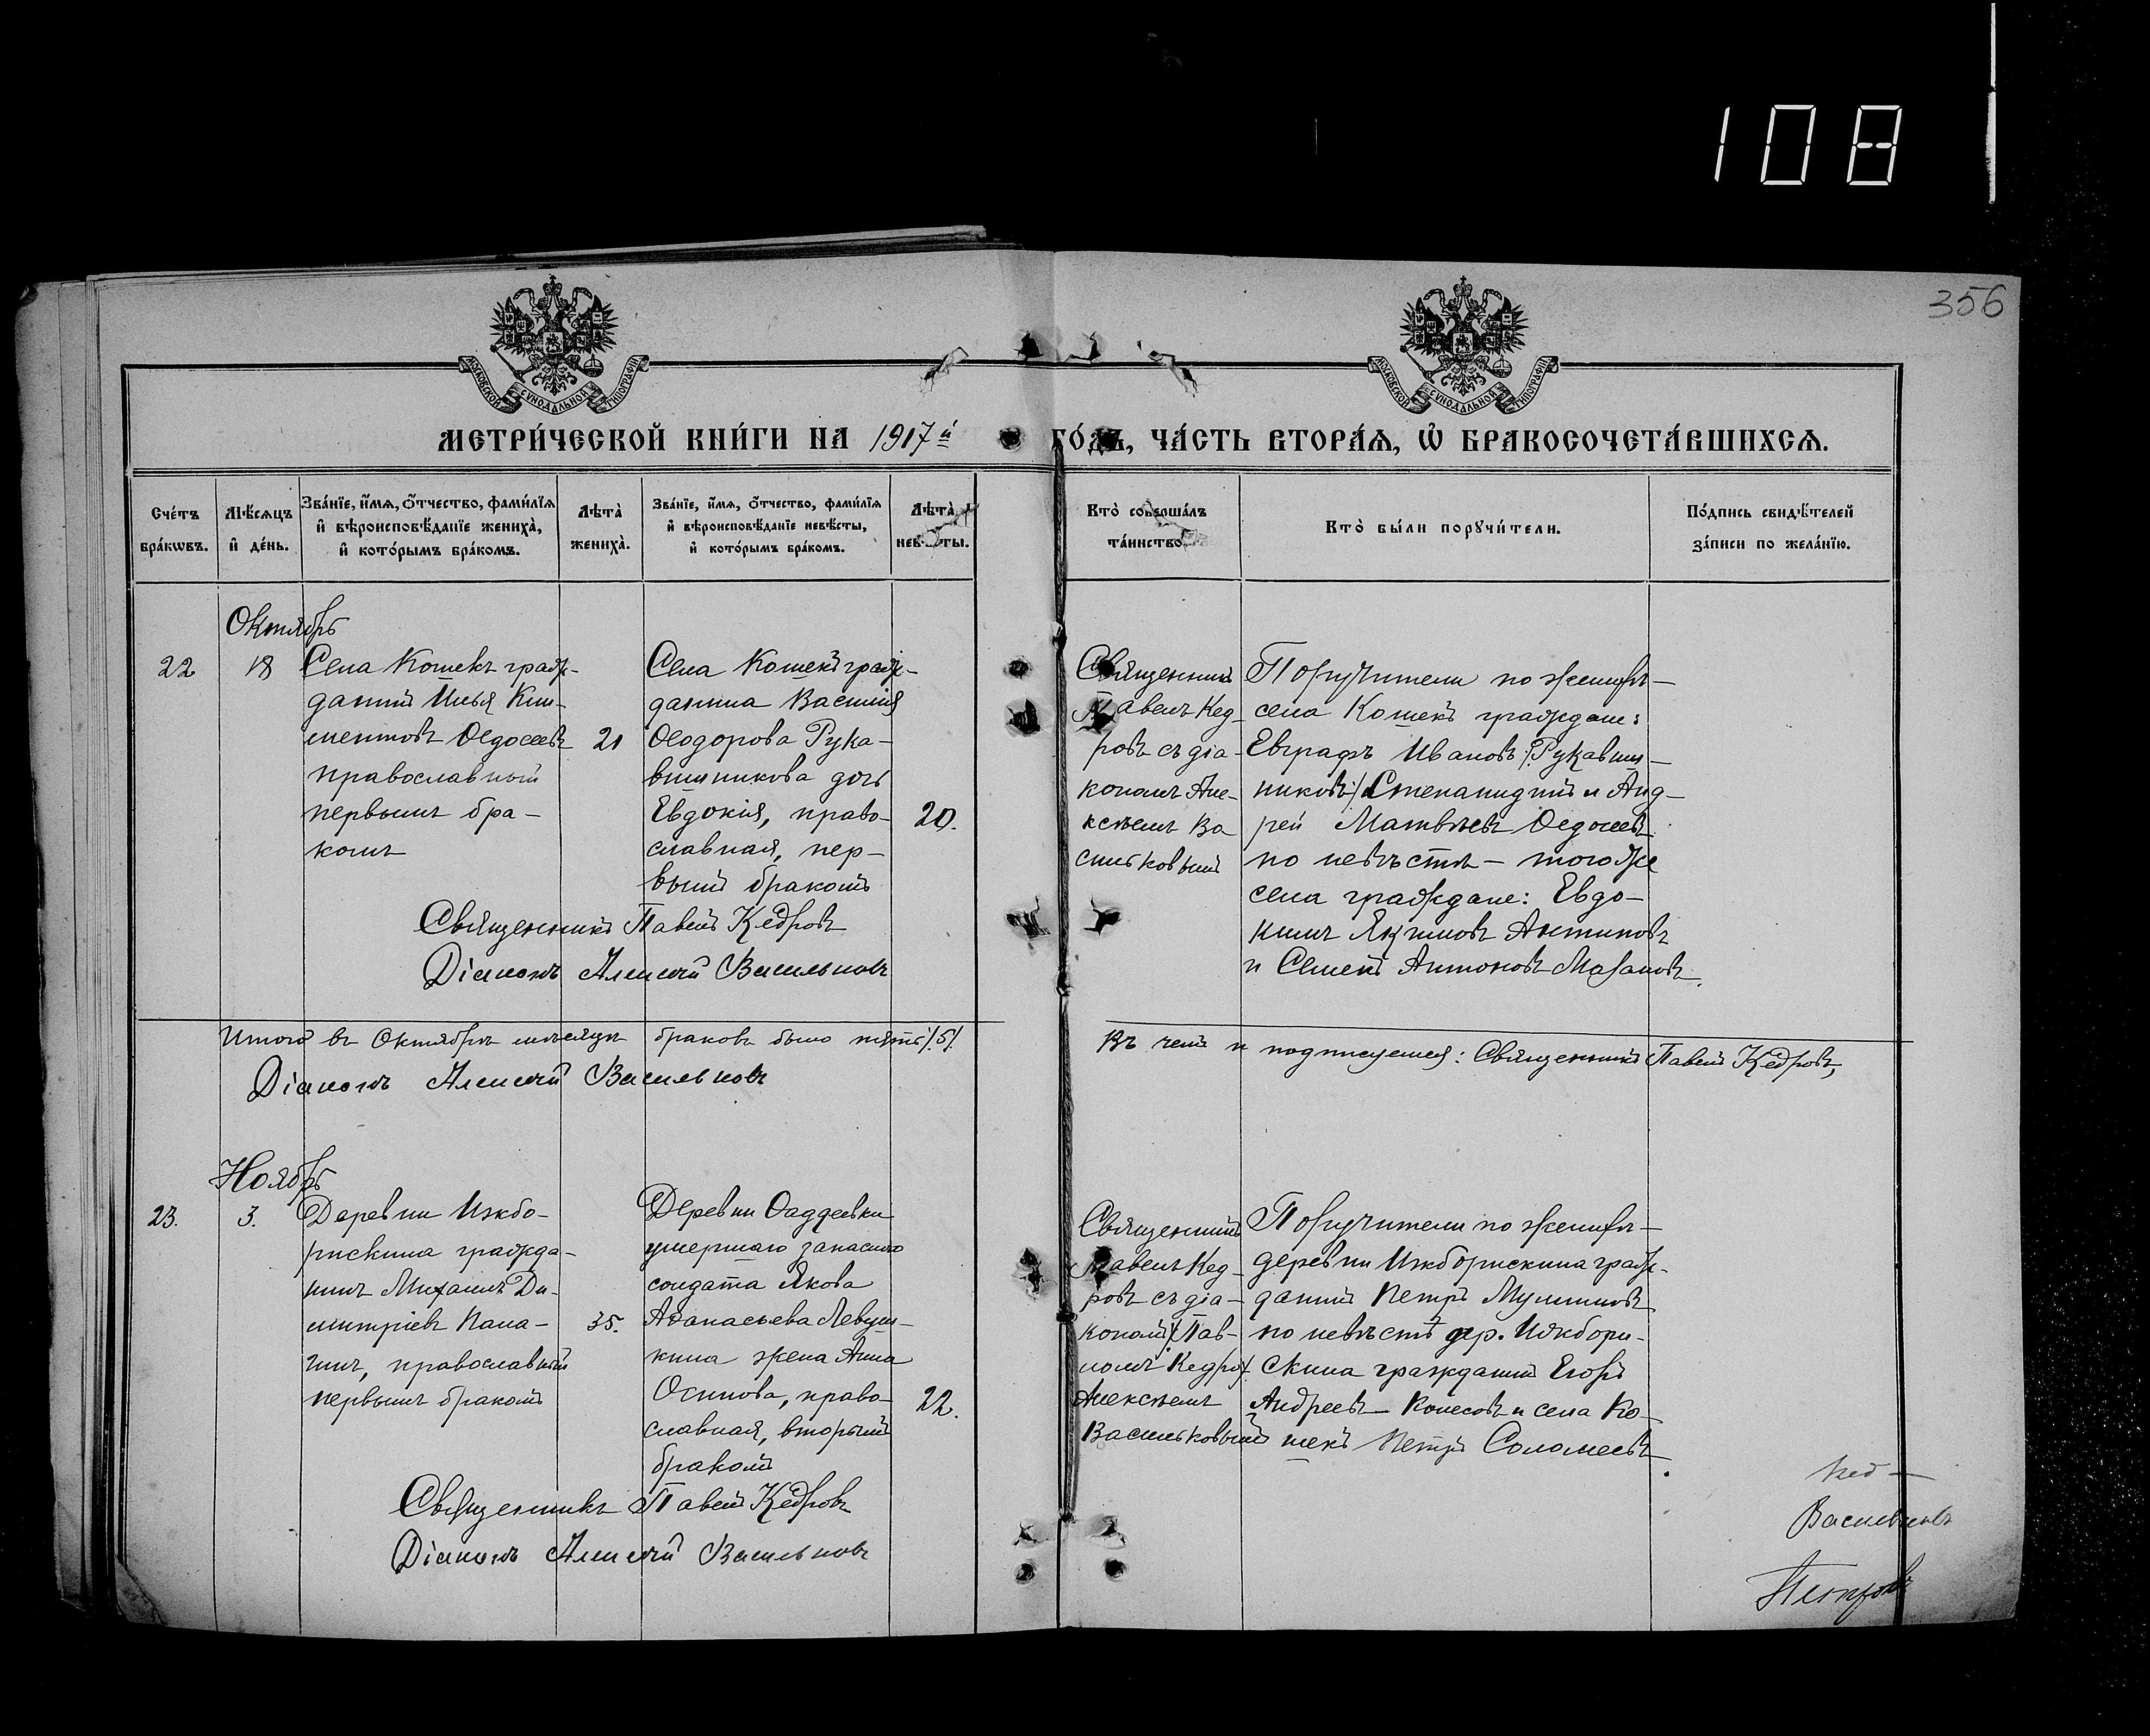 108
356
МОСКОВСКОЙ СѴНОДАЛЬНОЙ ТИПОГРАФІИ
МОСКОВСКОЙ СѴНОДАЛЬНОЙ ТИПОГРАФІИ
МЕТРИ́ЧЕСКОЙ КНИ́ГИ НА 1917й ГО́ДЪ, ЧА́СТЬ ВТОРА́Ѧ, Ѡ҆ БРАКОСОЧЕТА́ВШИХСѦ.
Сче́тъ
бра́кѡвъ.
Мѣ́сѧцъ
и҆ де́нь.
Зва́нїе, и҆́мѧ, о҆́тчество, фами́лїѧ
и҆ вѣроисповѣ́данїе жениха̀,
и҆ кото́рымъ бра́комъ.
Лѣта̀
жениха̀.
Зва́нїе, и҆́мѧ, о҆́тчество, фами́лїѧ
и҆ вѣроисповѣ́данїе невѣ́сты,
и҆ кото́рымъ бра́комъ.
Лѣта̀
невѣ́сты.
Кто̀ соверша́лъ
та́инство.
Кто̀ бы́ли порꙋчи́тели.
По́дпись свидѣ́телей
за́писи по жела́нїю.
Октябрь
22
18
Села Кошекъ граж-
данинъ Илья Кли-
ментовъ Ѳедосеевъ
православный
первымъ бра-
комъ
21
Села Кошекъ граж-
данина Василія
Ѳеодорова Рука-
вишникова дочь
Евдокія, право-
славная, пер-
вымъ бракомъ
20.
Священникъ
Павелъ Кед-
ровъ съ діа-
кономъ Але-
ксѣемъ Ва
сильковымъ
Поручители по женихѣ-
села Кошекъ граждане:
Евграфъ Ивановъ /:Рукавиш-
никовъ:/ Степанидинъ и Анд-
рей Матвѣевъ Ѳедосеевъ
по невѣстѣ - того же
села граждане: Евдо-
кимъ Якимовъ Антиповъ
и Семенъ Антоновъ Мазановъ.
Священникъ Павелъ Кедровъ
Діаконъ Алексѣй Васильковъ
Итого въ Октябрѣ мѣсяцѣ браковъ было пять /:5/.
Въ чемъ и подписуемся: Священникъ Павелъ Кедровъ,
Діаконъ Алексѣй Васильковъ
Ноябрь
23.
3.
Деревни Ижбо-
рискина гражда-
нинъ Михаилъ Ди-
митріевъ Пала-
гинъ, православный
первымъ бракомъ
35.
Деревни Ѳаддеевки
умершаго запаснаго
солдата Якова
Аѳанасьева Левуш-
кина жена Анна
Осипова, право-
славная, вторымъ
бракомъ
22.
Священникъ
Павелъ Кед-
ровъ съ діа-
кономъ /:Пав-
ломъ Кедро/.
Алексѣемъ
Васильковымъ
Поручители по женихѣ-
деревни Ижборискина граж-
данинъ Петръ
по невѣстѣ дер. Ижбори-
скина гражданинъ Егоръ
Андреевъ Колесовъ и села Ко-
шекъ Петръ Соломеевъ.
Священникъ Павелъ Кедровъ
Діаконъ Алексѣй Васильковъ
Кед-
Васильковъ
Петровъ